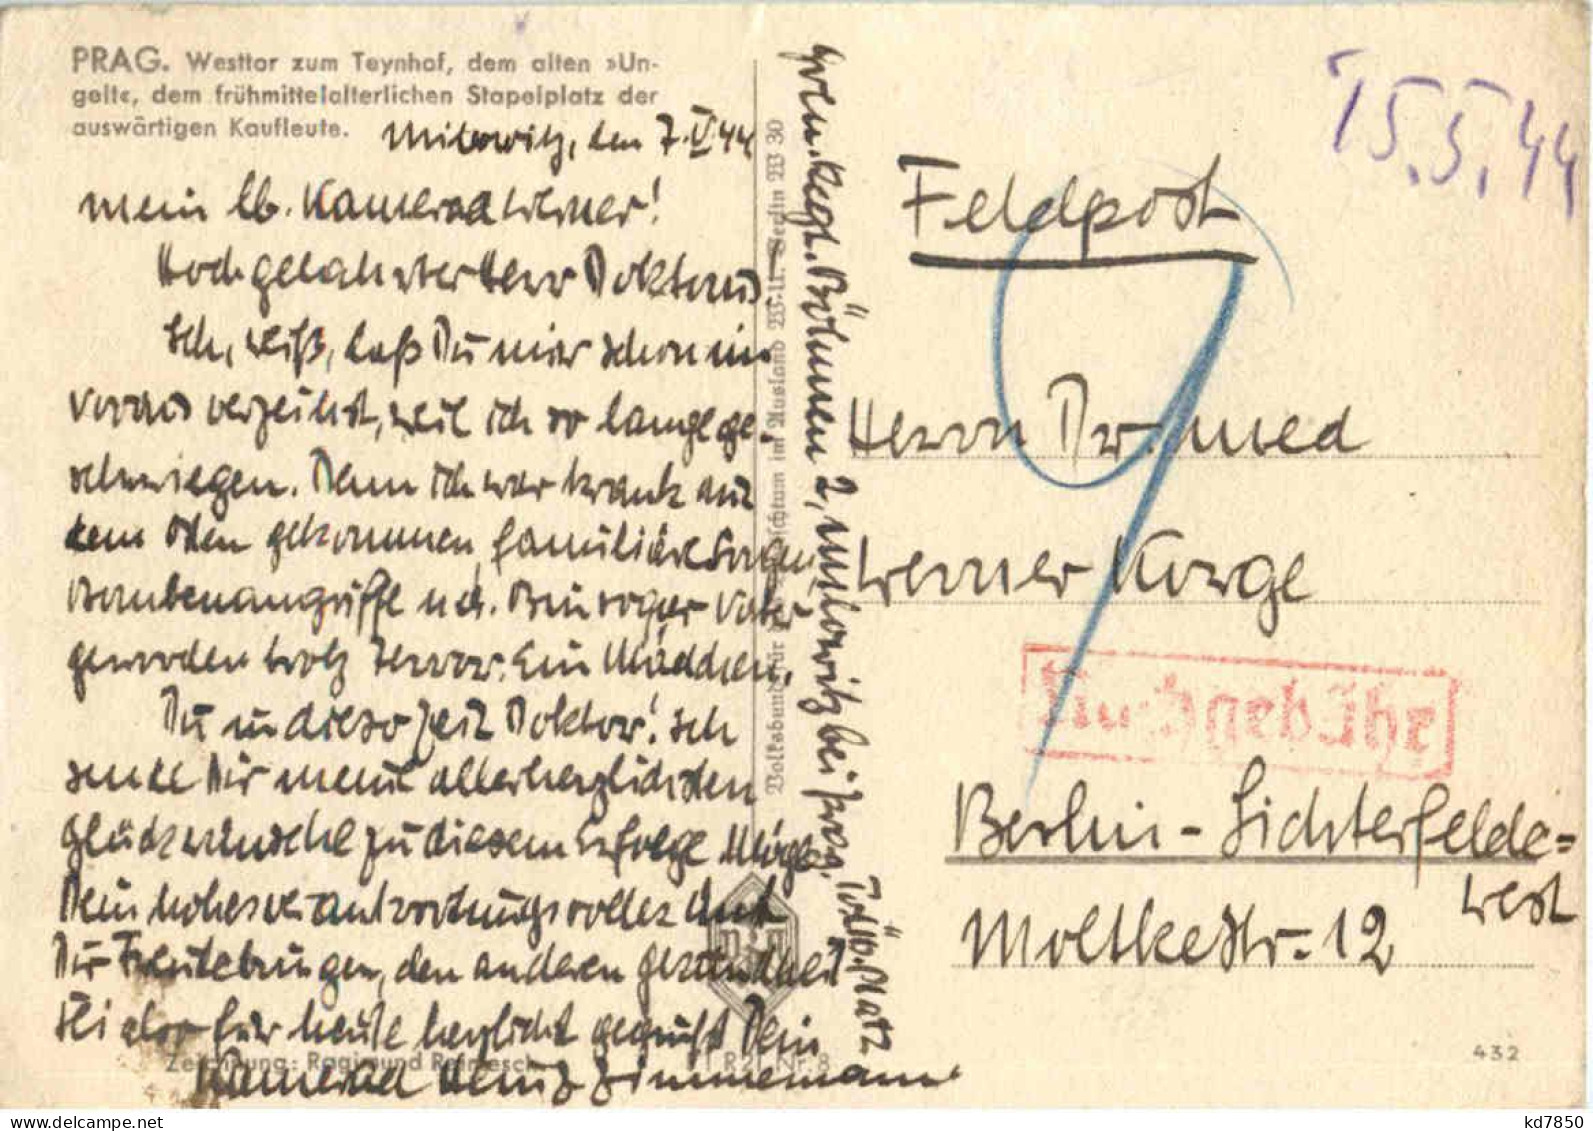 PRAG. Westtor zum Teynhof, dem alten »Un-
gelt«, dem frühmittelalterlichen Stapelplatz der
auswärtigen Kaufleute.
Milowitz, den 7.V.44
Mein lb. Kamerad Werner!
Hochgelahrter Herr Doktorus.
Ich weiß, daß Du mir schon im
voraus verzeihst, weil ich so lange ge-
schwiegen. Denn ich war krank aus
dem Osten gekommen, familiäre Sorgen,
Bombenangriffe usw. Bin sogar Vater
geworden trotz Terror. Ein Mädchen.
Du in dieser Zeit Doktor! Ich
sende Dir meine allerherzlichsten
Glückwünsche zu diesem Erfolge. Möge
Dein hohes verantwortungsvolles Amt
Dir Freude bringen, den anderen Gesundheit
Sei also für heute herzlichst gegrüßt Dein
Kamerad Heinz Zimmermann
Zeichnung: Ragimund Reimesch
R 21 Nr. 8
Volksbund für das Deutschtum im Ausland W.-U. Berlin W 30
Gren. Regt. Böhmen 2, Milowitz bei Prag,
Tr. Üb. Platz
15.5.44
Feldpost
9
Herrn Dr. med
Werner Korge
Nachgebühr
Berlin-Lichterfelde-
West
Moltkestr. 12
432
kd7850